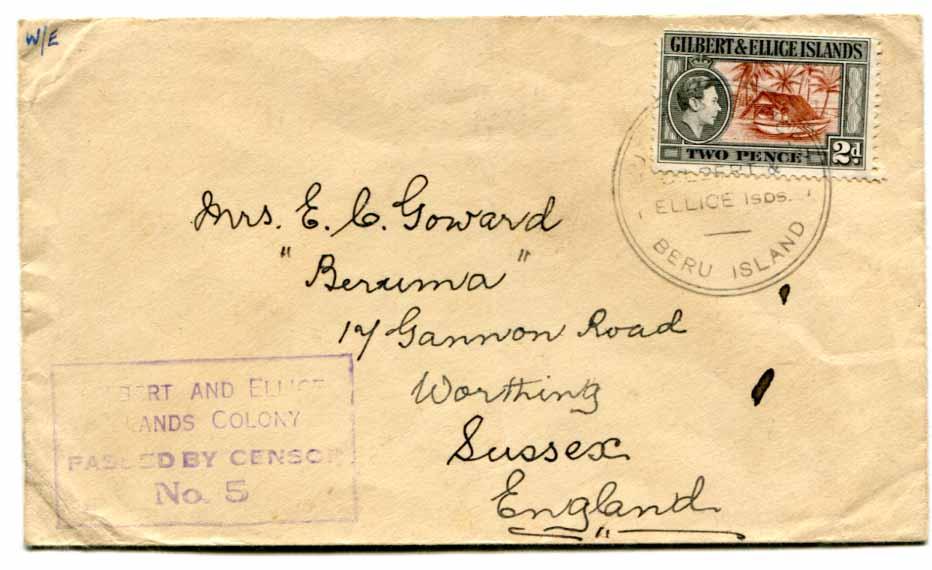 W/E
GILBERT & ELLICE ISLANDS
TWO PENCE 2d
GILBERT &
ELLICE ISDS.
BERU ISLAND
Mrs. E. C. Goward
"Beruma"
17 Gannon Road
Worthing
Sussex
England
BERT AND ELLICE
LANDS COLONY
PASSED BY CENSOR
No. 5